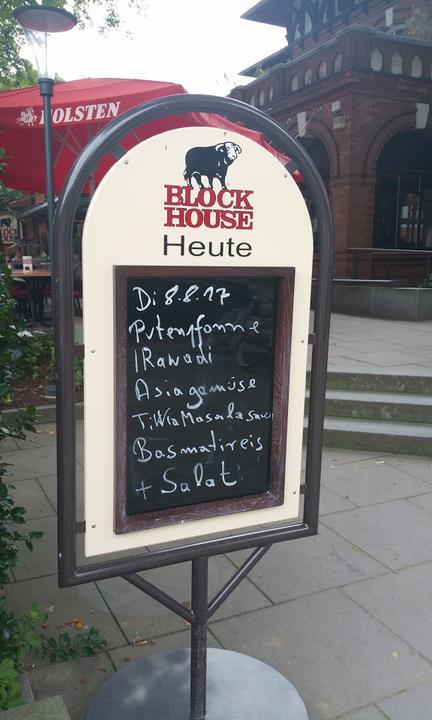 HOLSTEN
BLOCK
HOUSE
Heute
Di 8.8.17
Putenpfanne
IRawadi
Asiagemüse
TikkaMasalasauce
Basmatireis
+ Salat